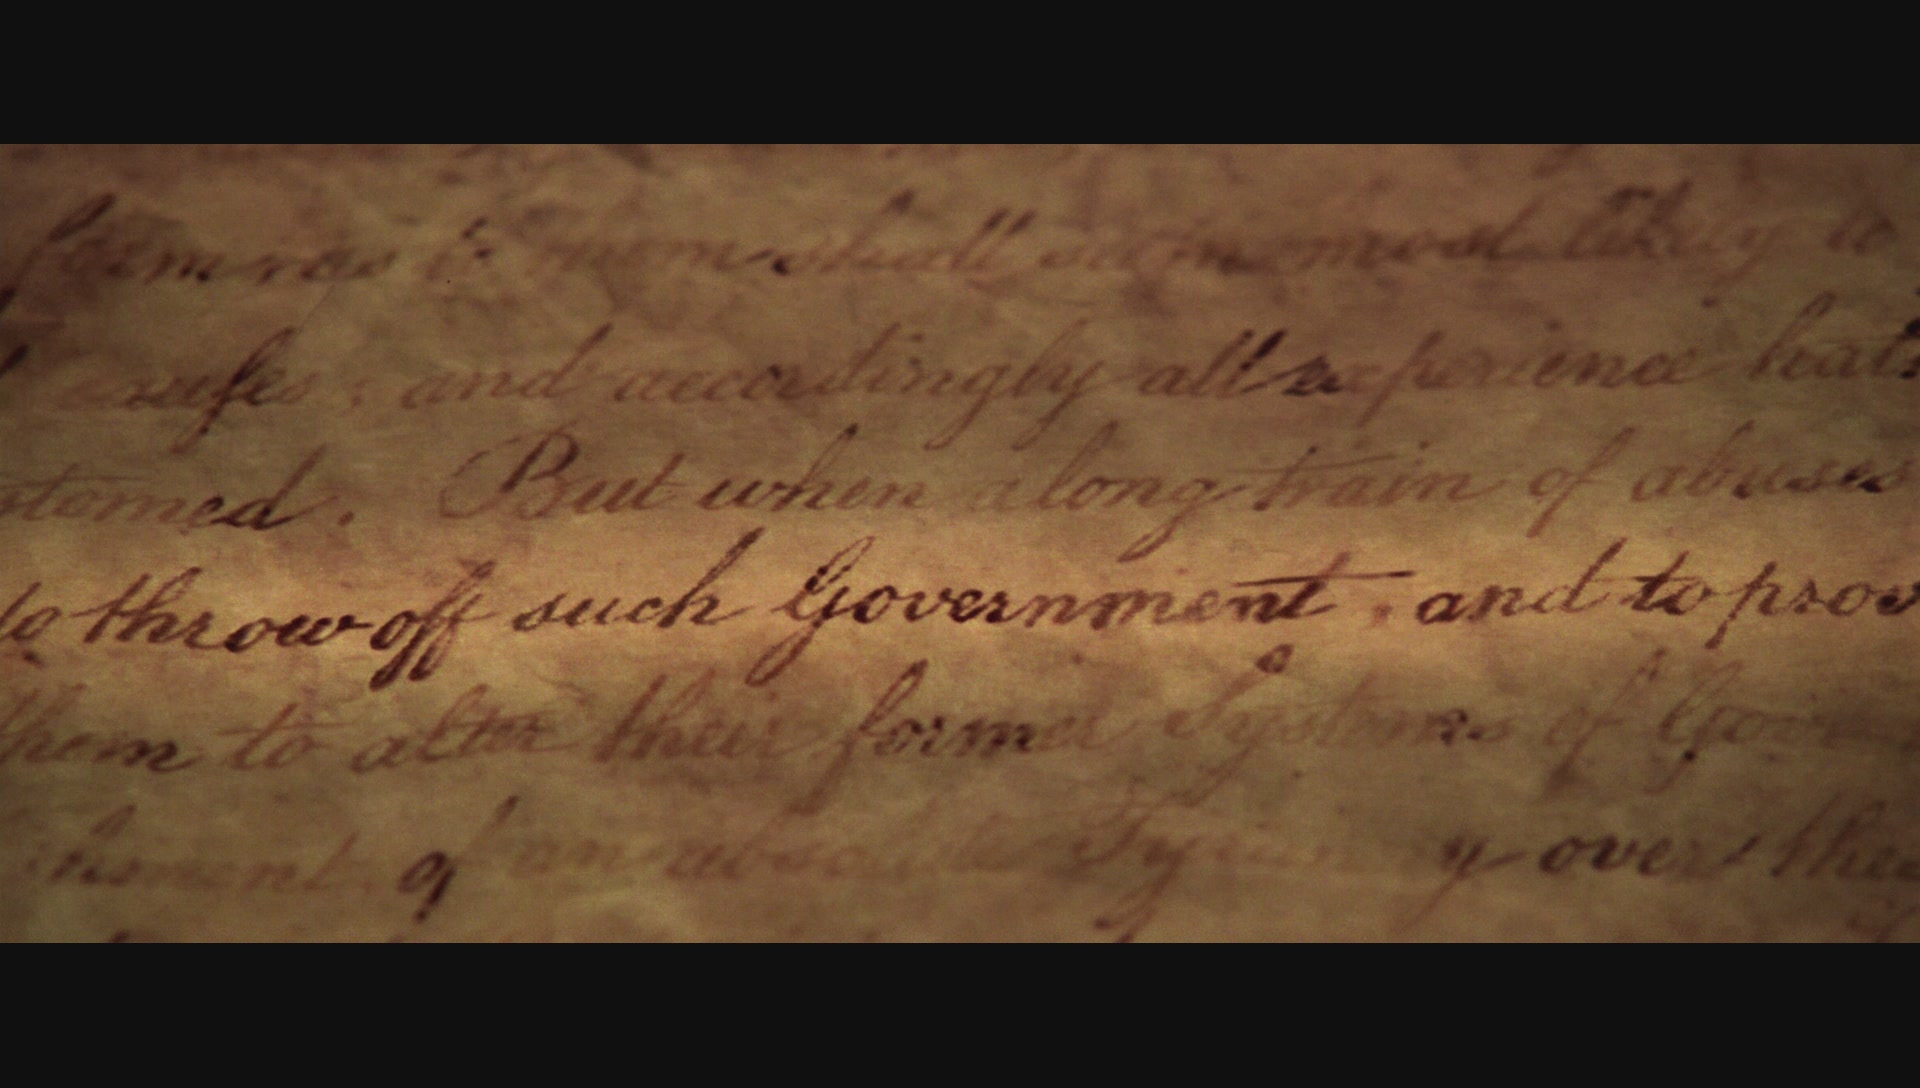 form, as to them shall seem most likely to
causes; and accordingly all experience hath
stomed. But when a long train of abuses
to throw off such Government, and to prov
them to alter their former Systems of Govern
ishment of an absolute Tyranny over these